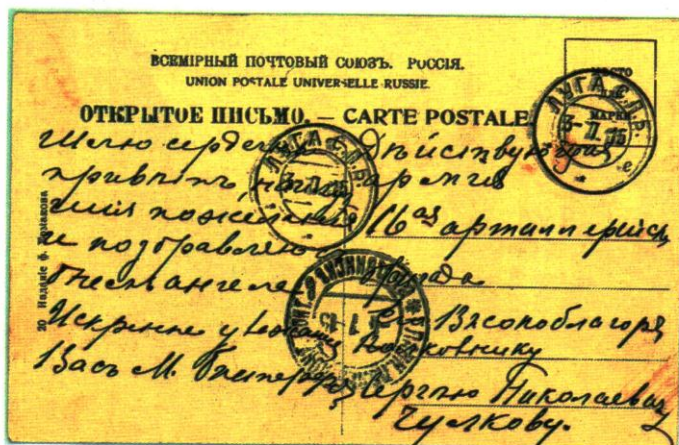 ВСЕМІРНЫЙ ПОЧТОВЫЙ СОЮЗЪ. РОССІЯ.
UNION POSTALE UNIVERSELLE RUSSIE.
ОТКРЫТОЕ ПИСЬМО. — CARTE POSTALE
МѢСТО
МАРКИ
ЛУГА С.П.Б.
ЛУГА С.П.Б.
Шлю сердечный
привѣтъ
пожеланія
и поздравляю
Днемъ ангела
Искренне уважающій
Васъ М.
Дѣйствующая
армія
16ая артиллерійск
бригада
Его Высокоблагор
Полковнику
Сергѣю Николаевичу
Чулкову.
20 Изданіе